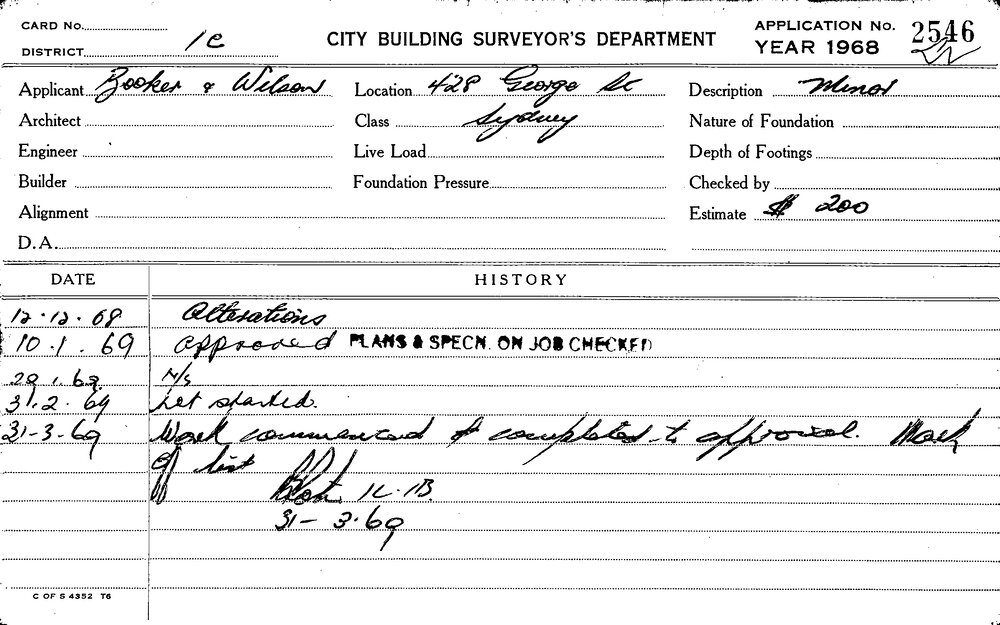 CARD No.
DISTRICT 1c
CITY BUILDING SURVEYOR'S DEPARTMENT
APPLICATION No. 2546
YEAR 1968
Applicant Booker & Wilson
Location 428 George St
Description Minor
Architect
Class Sydney
Nature of Foundation
Engineer
Live Load
Depth of Footings
Builder
Foundation Pressure
Checked by
Alignment
Estimate $ 200
D.A.
DATE HISTORY
12.12.68 Alterations
10.1.69 approved PLANS & SPECN. ON JOB CHECKED
N/S
31.2.69 started.
31-3-69 Work commenced & completed to approval. Mark
off list
31-3.69
C OF S 4352 T6